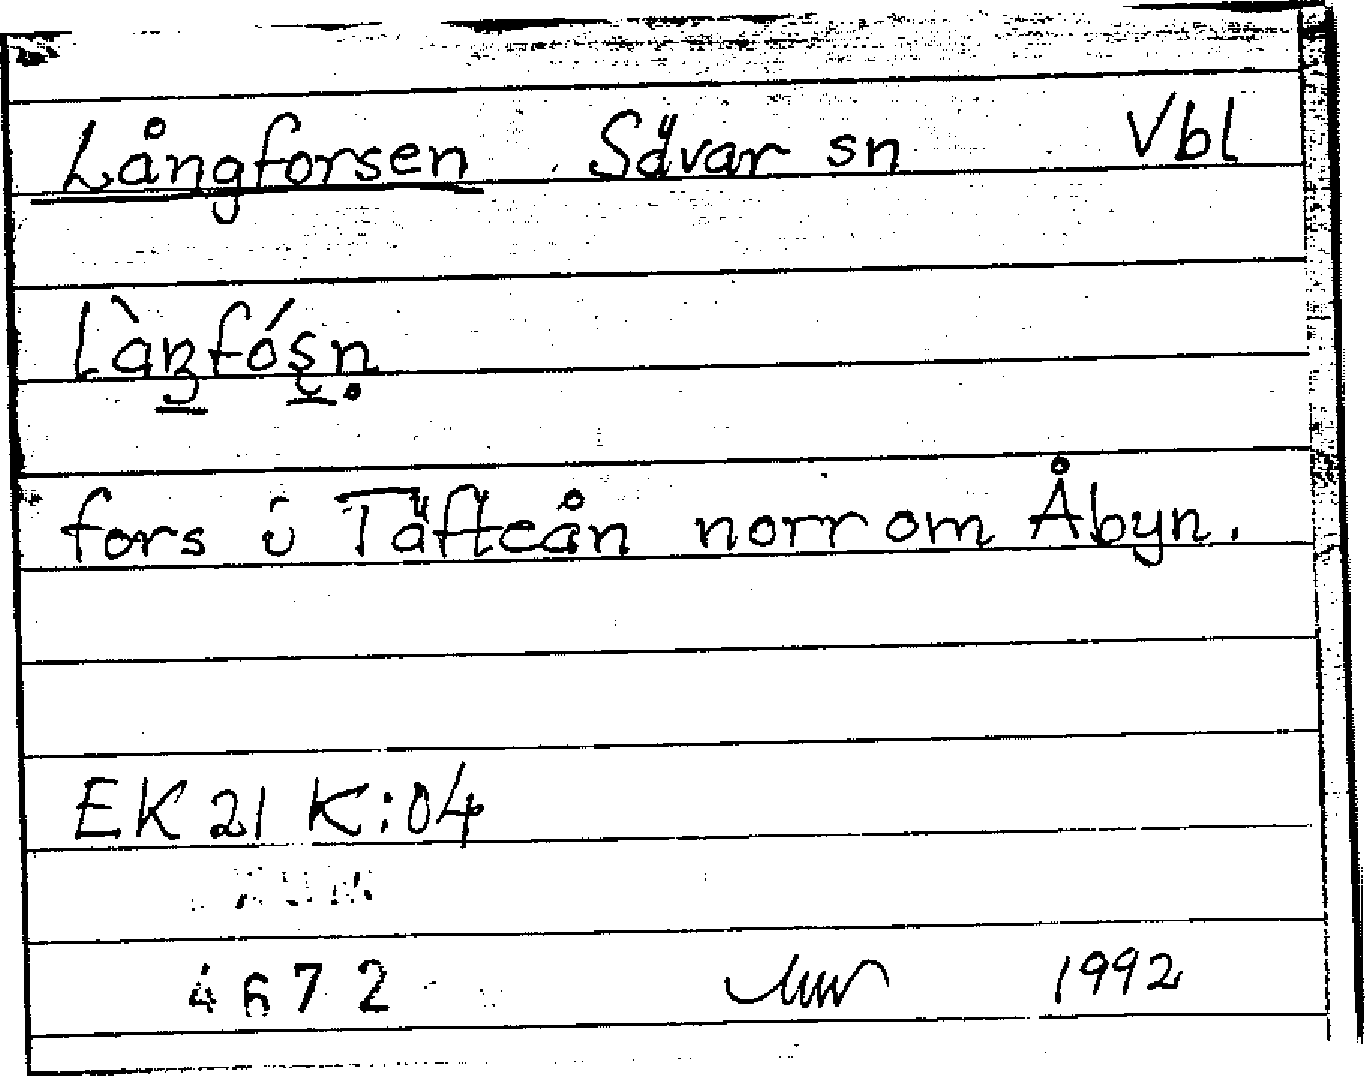 Långforsen Sävar sn Vbl
Làŋfóşṇ
fors i Täfteån norr om Åbyn.
EK 21 K:04
4672 1992